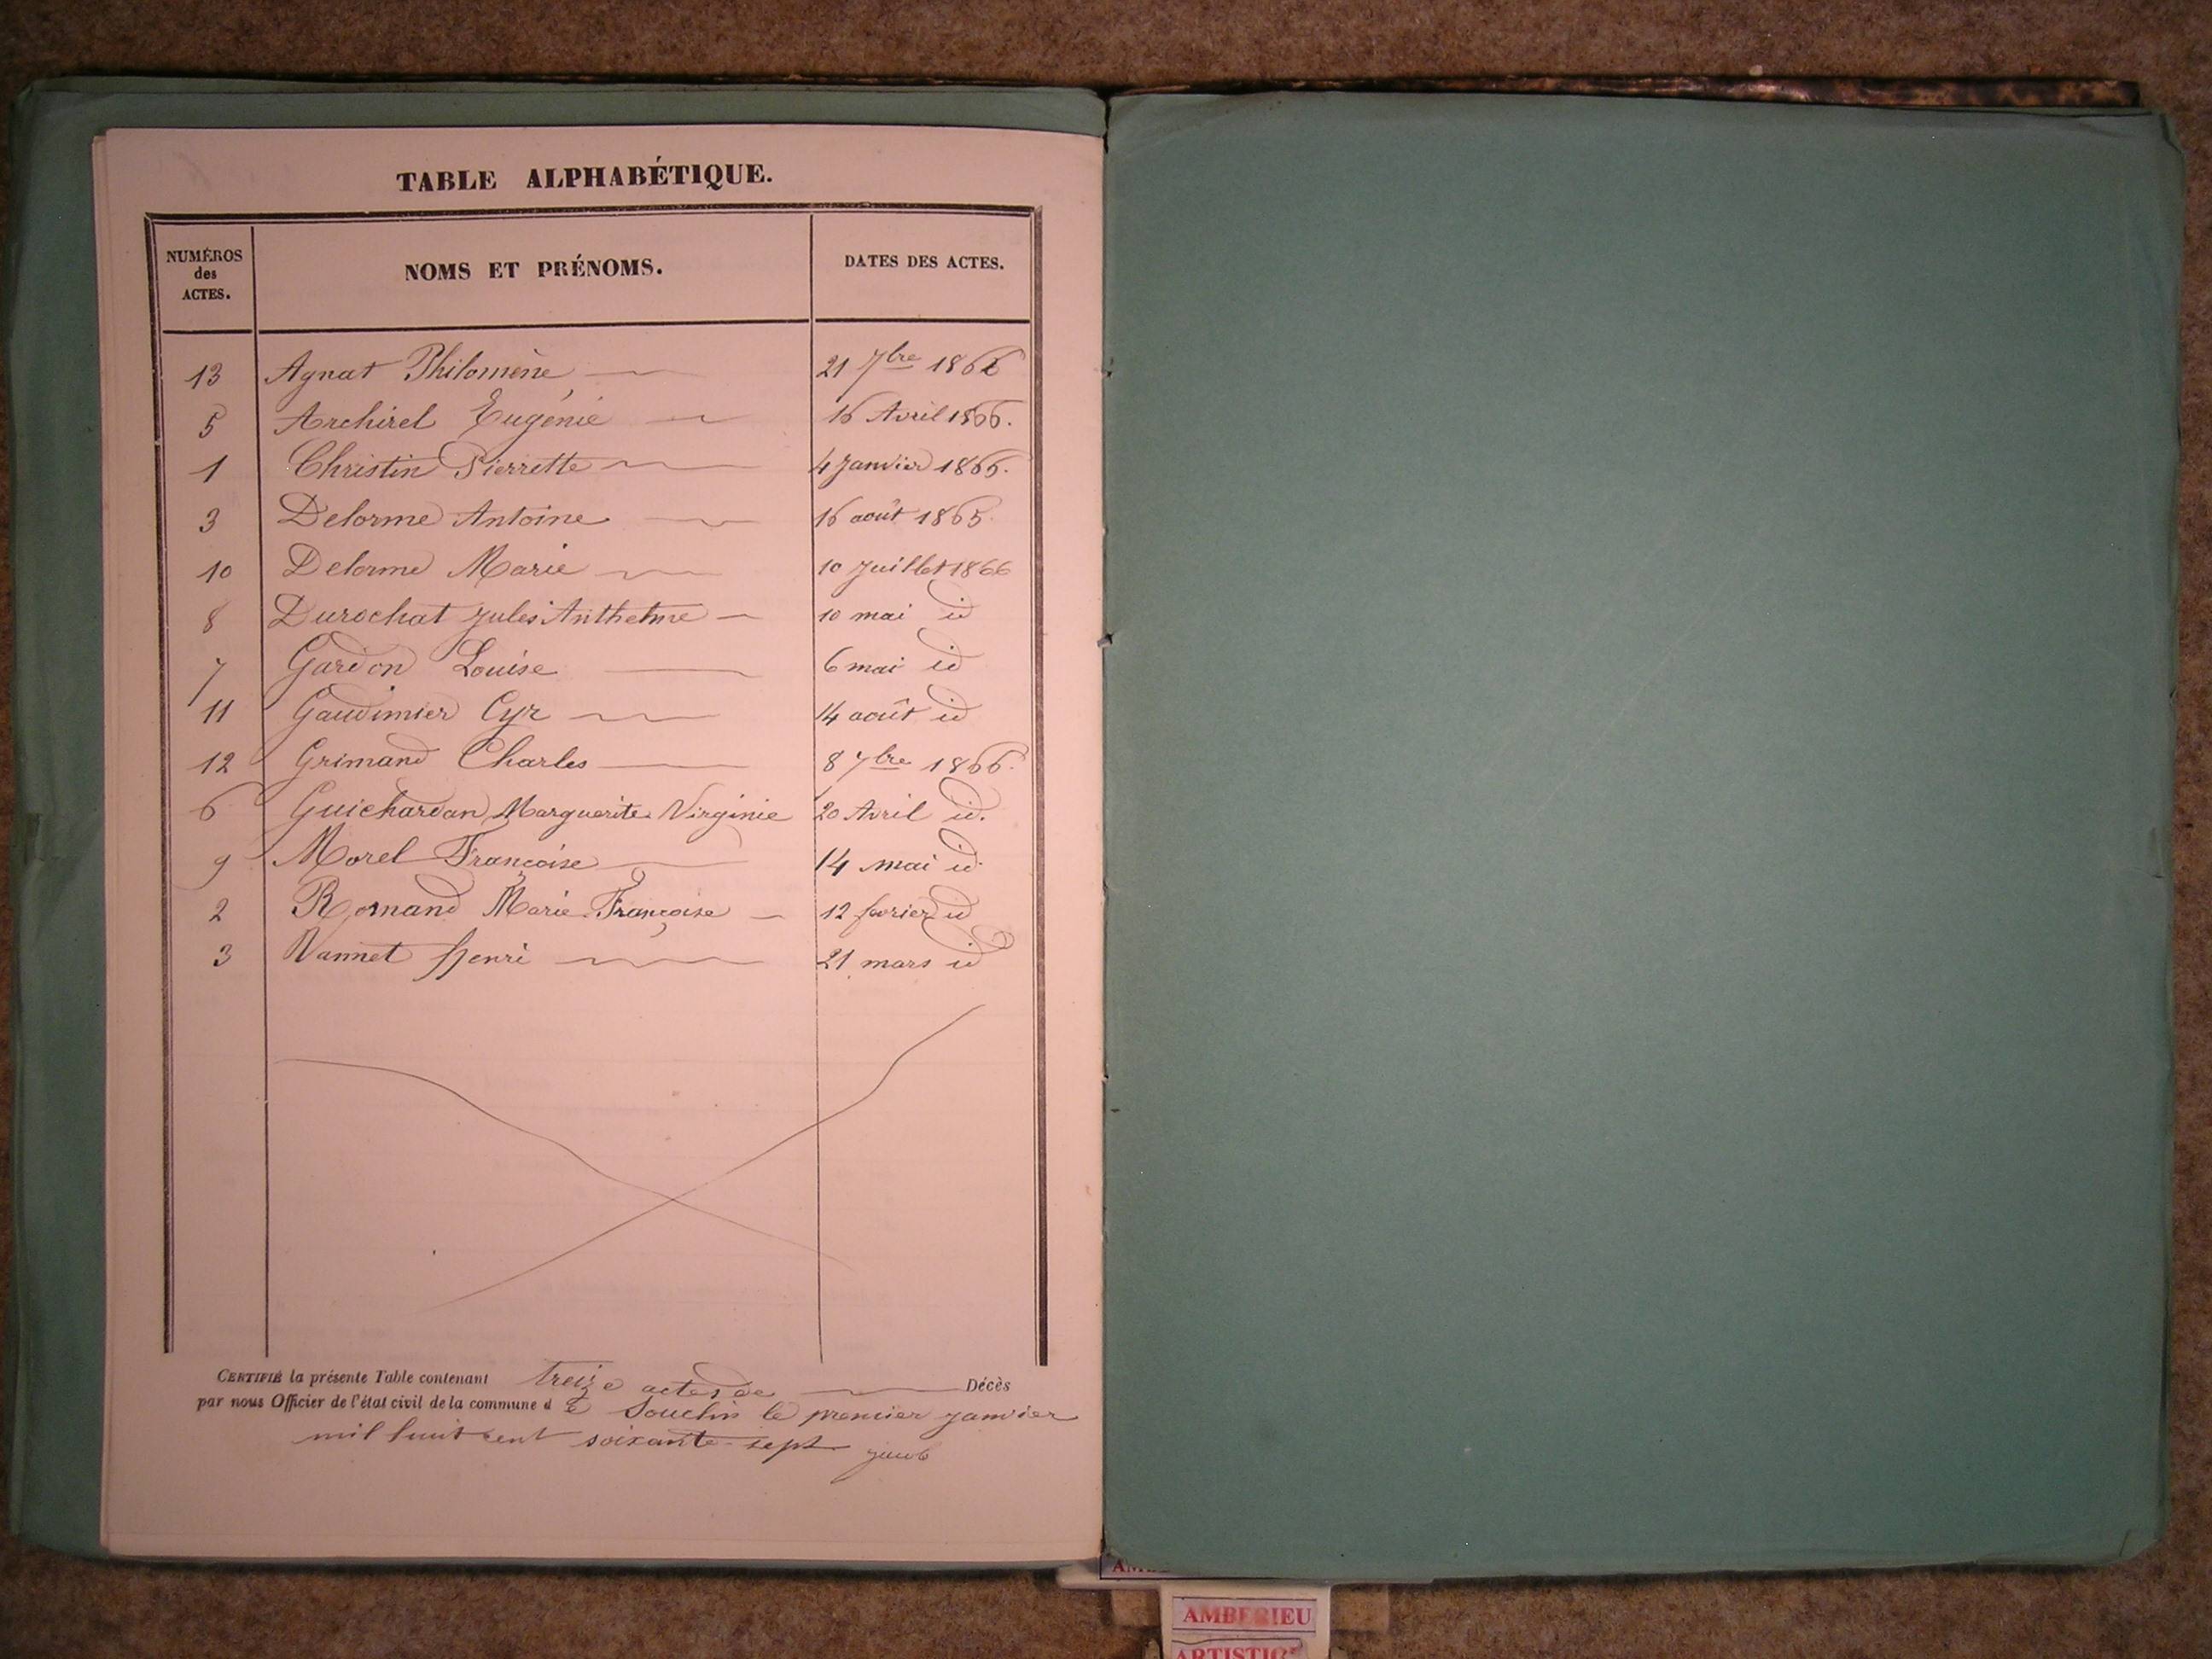 TABLE ALPHABÉTIQUE.
NUMÉROS des ACTES. NOMS ET PRÉNOMS. DATES DES ACTES.
13 Agnat Philomène 21 7bre 1866
5 Archirel Eugénie 16 Avril 1866.
1 Christin Pierrette 4 Janvier 1866.
3 Delorme Antoine 16 août 1865
10 Delorme Marie 10 Juillet 1866
8 Durochat Jules Anthelme 10 mai id
7 Gardon Louise 6 mai id
11 Gaudimier Cyr 14 août id
12 Grimand Charles 8 7bre 1866.
6 Guichardan Marguerite Virginie 20 Avril id.
9 Morel Françoise 14 mai id
2 Rornand Marie Françoise 12 février id
3 Vannet Henri 21 mars id
CERTIFIÉ la présente Table contenant treize actes de Décès
par nous Officier de l'état civil de la commune de Souclin le premier janvier
mil huit cent soixante-sept
AMBERIEU
ARTISTIQ